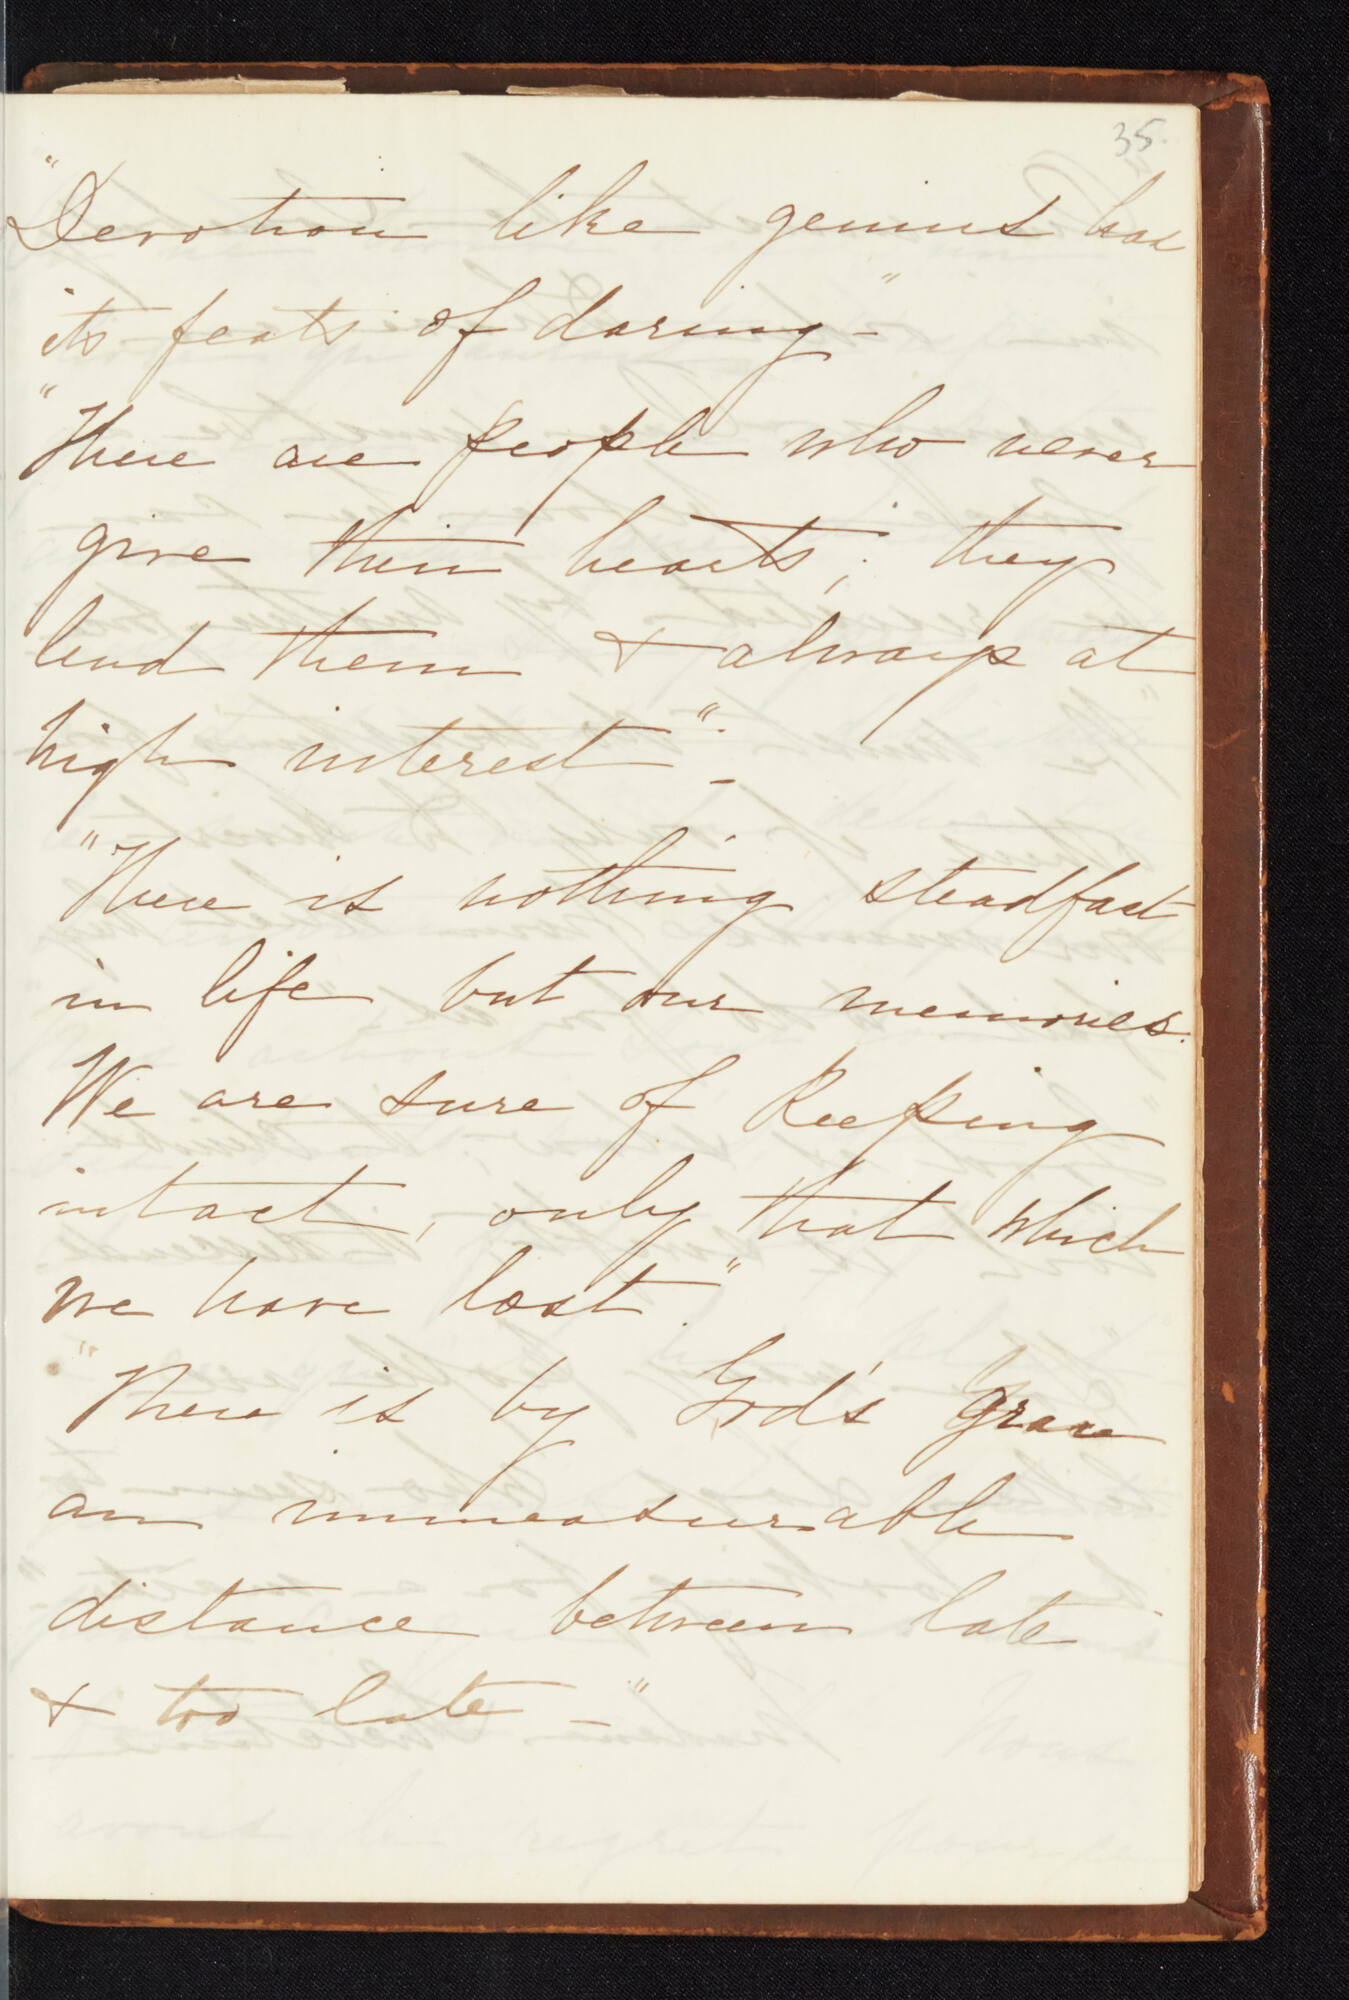 35.
"Devotion like genius has
its feats of daring"-
"There are people who never
give their hearts; they
lend them & always at
high interest".-
"There is nothing steadfast
in life but our memories.
We are sure of keeping
intact, only that which
we have lost."
"There is by God's grace
an immeasurable
distance between late
& too late -"